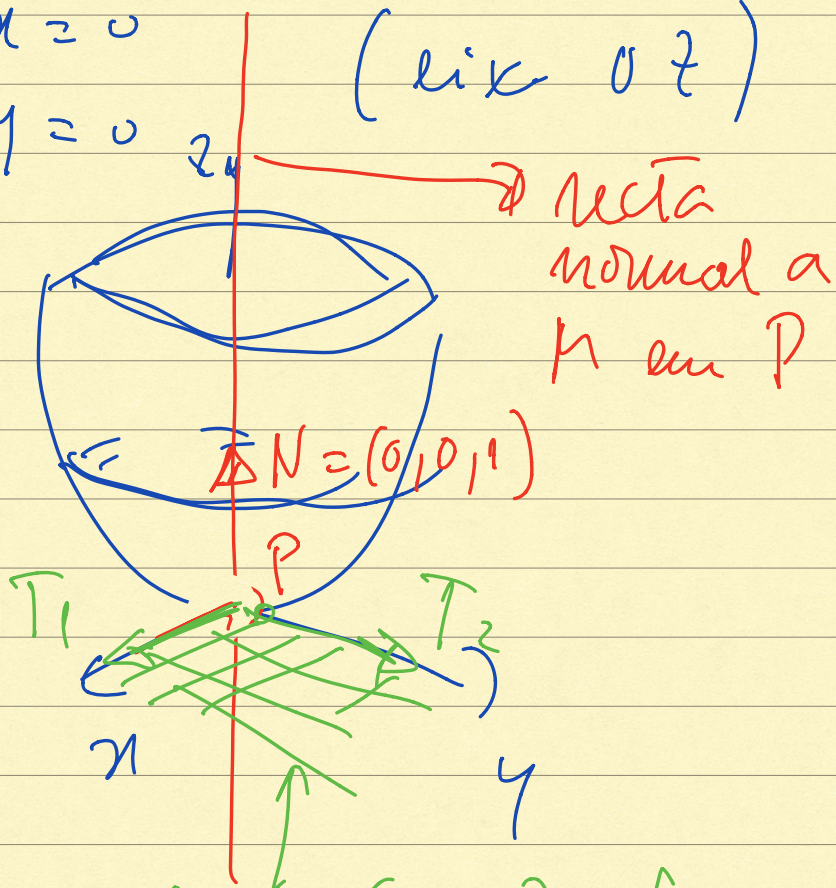 x = 0
(eix 0z)
y = 0
z
recta
normal a
M en P
N = (0,0,1)
P
T1
T2
x
y